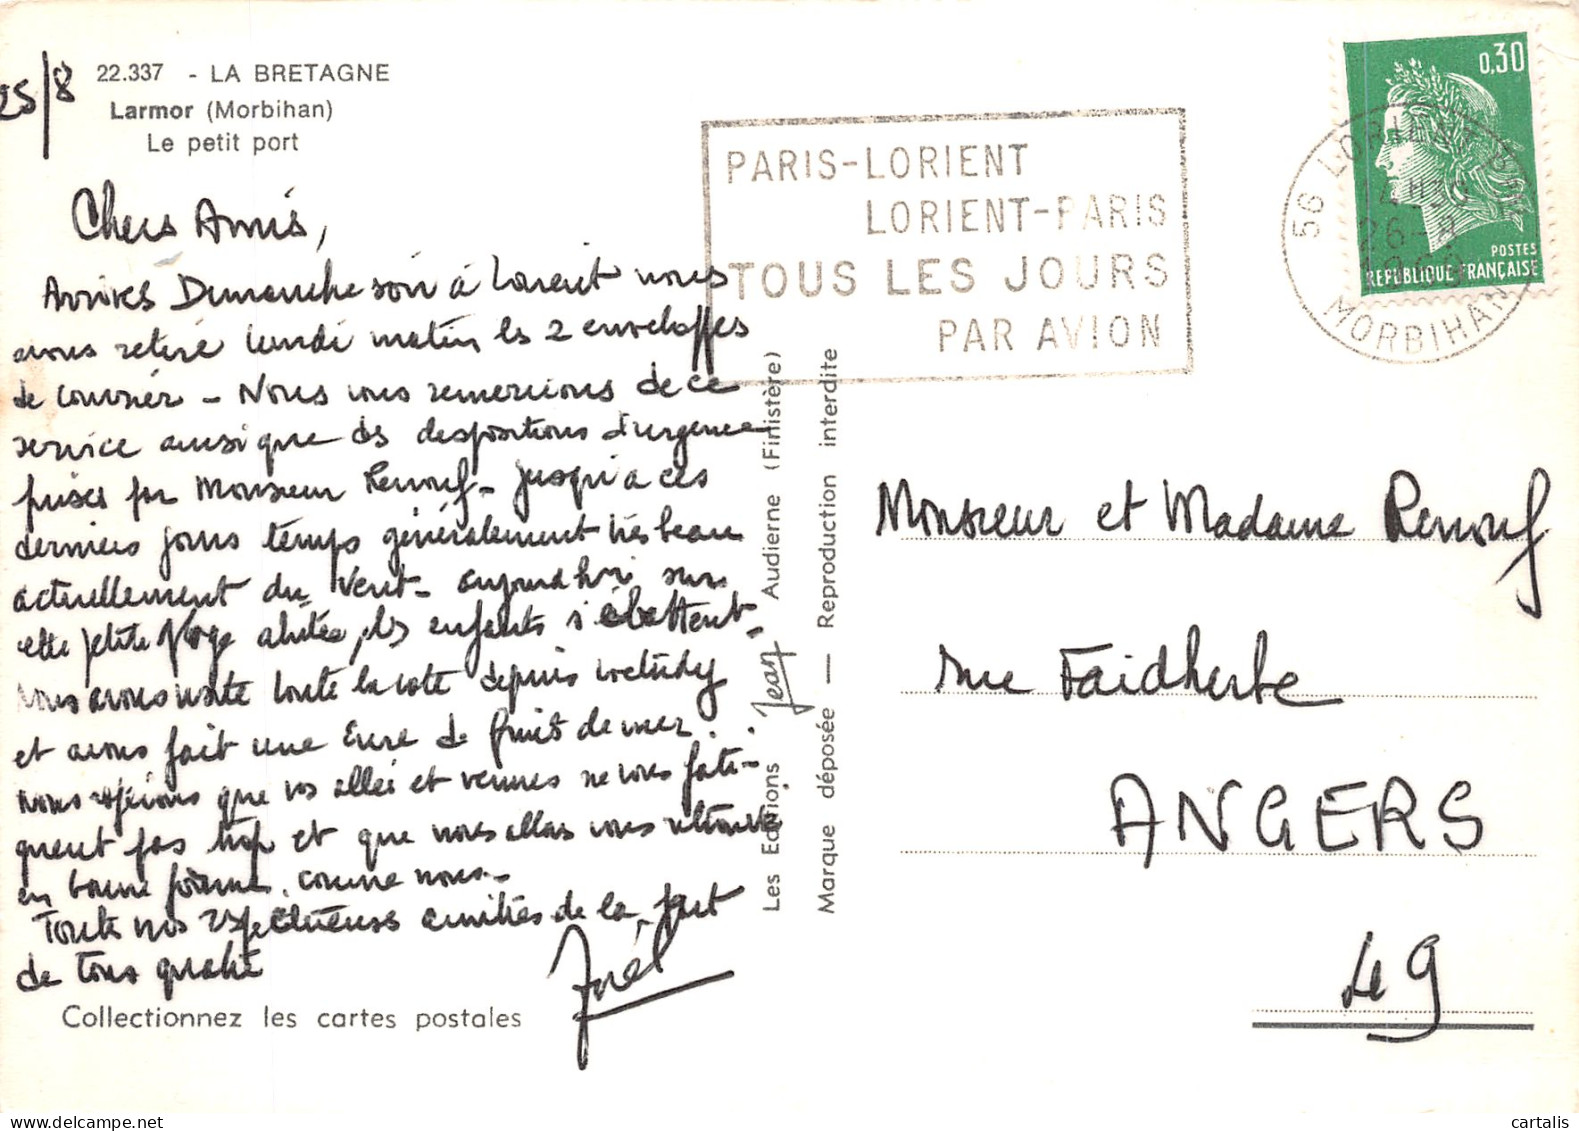 25/8
22.337 - LA BRETAGNE
Larmor (Morbihan)
Le petit port
Chers Amis,
Arrivés Dimanche soir à Lorient nous
avons retiré lundi matin les 2 enveloppes
de courrier - Nous vous remercions de ce
service ainsi que des dispositions d'urgence
prises par Monsieur Renouf - jusqu'à ces
derniers jours temps généralement très beau
actuellement du vent - aujourd'hui sur
cette petite plage abritée, les enfants s'ébattent -
nous avons visité toute la côte depuis
et avons fait une cure de fruits de mer.
nous espérons que vos allées et venues ne vous fati-
guent pas trop et que nous allons vous retrouver
en bonne forme, comme nous -
Toutes nos respectueuses amitiés de la part
de tous quatre
Joël
Collectionnez les cartes postales
Les Editions Jean Audierne (Finistère)
Marque déposée — Reproduction interdite
PARIS-LORIENT
LORIENT-PARIS
TOUS LES JOURS
PAR AVION
0,30
POSTES
REPUBLIQUE FRANÇAISE
56 LORIENT
26-8
MORBIHAN
Monsieur et Madame Renouf
rue Faidherbe
ANGERS
49
cartalis
delcampe.net